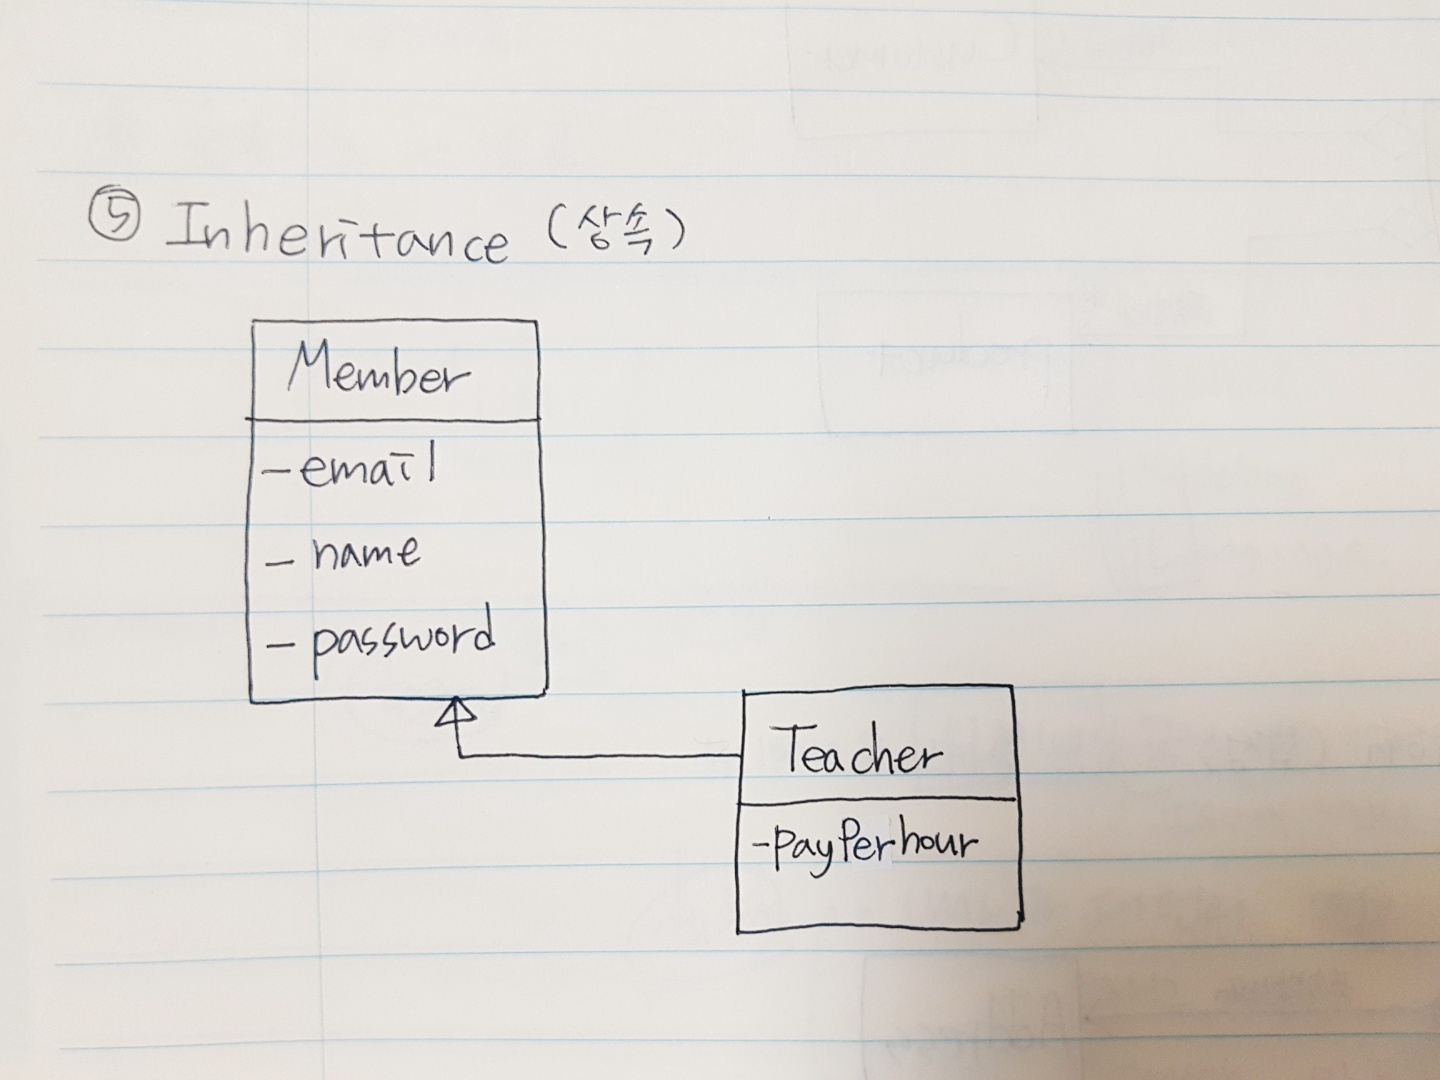 ⑤ Inheritance (상속)
Member
- email
- name
- password
Teacher
- payPerhour